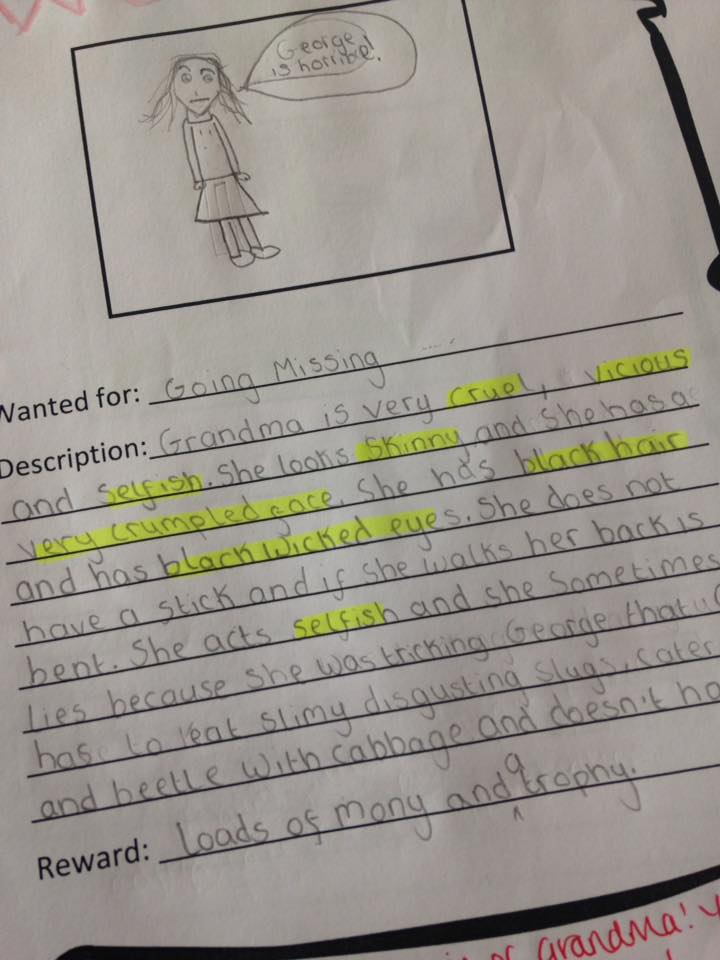 George
is horrible!
Wanted for: Going Missing
Description: Grandma is very cruel, vicious
and selfish. She looks skinny and she has a
very crumpled face. She has black hair
and has black wicked eyes. She does not
have a stick and if she walks her back is
bent. She acts selfish and she sometimes
lies because she was tricking George that
has to eat slimy disgusting slugs, cater
and beetle with cabbage and doesn't ha
Reward: Loads of mony and a trophy.
or Grandma!